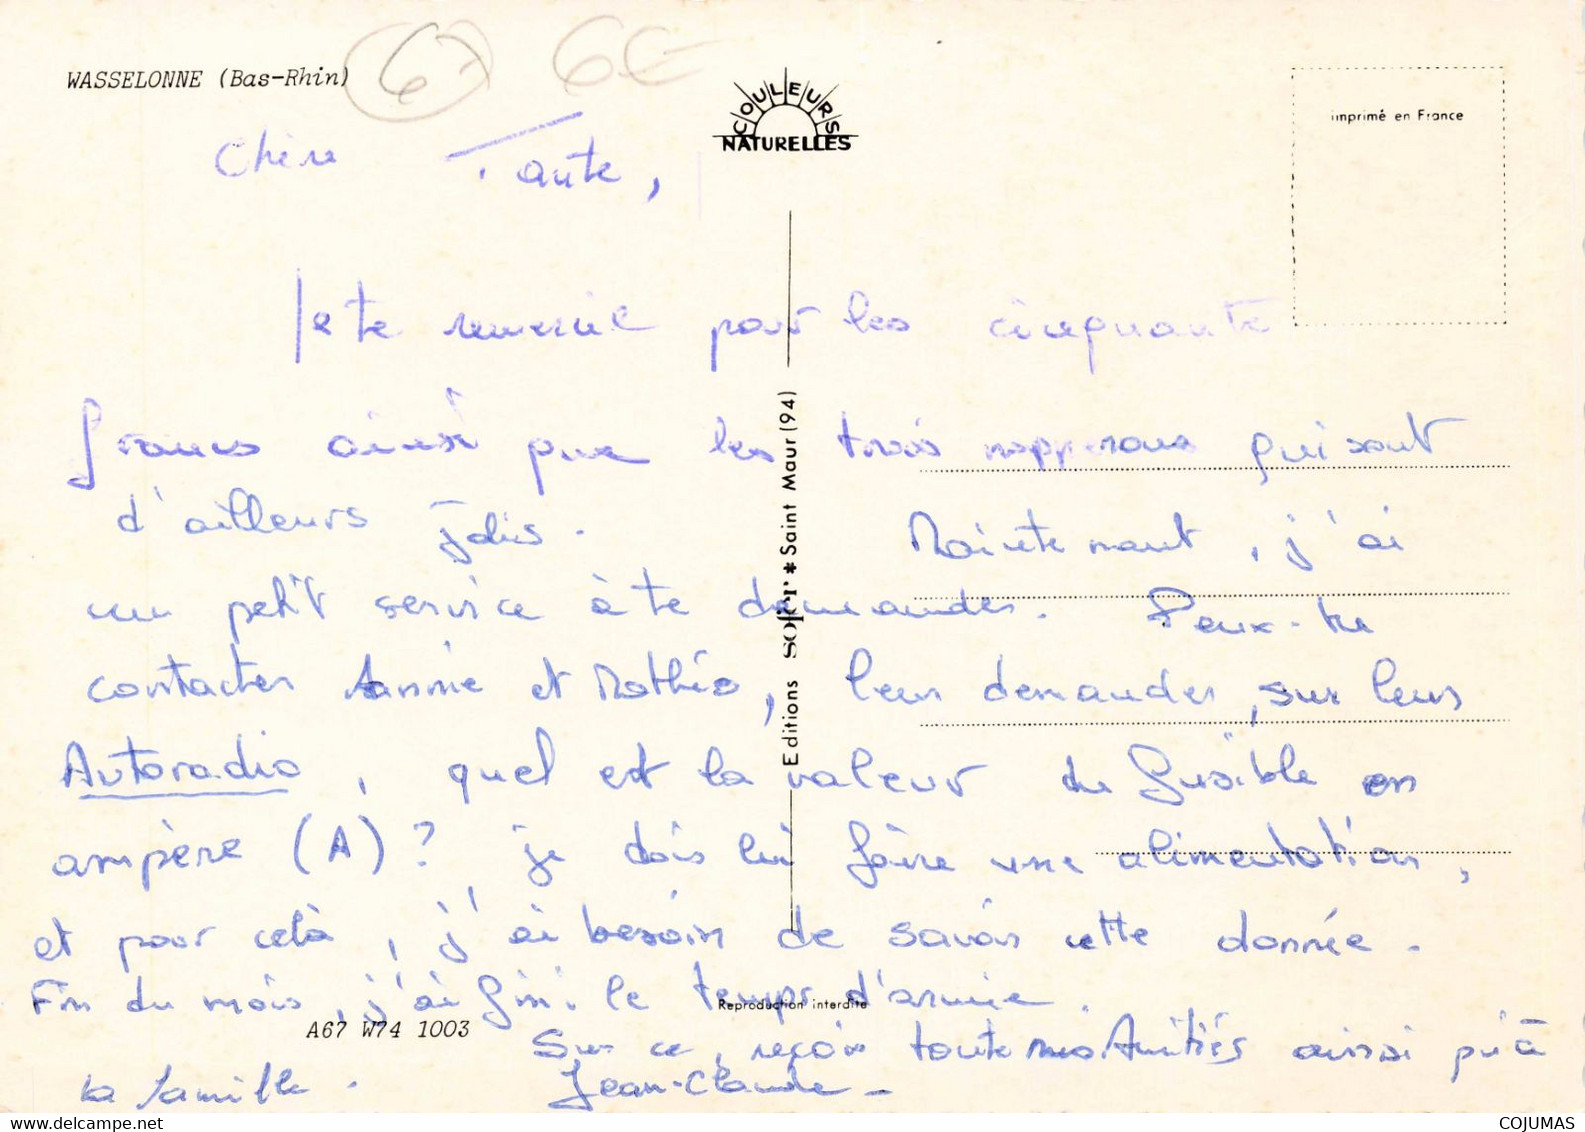 WASSELONNE (Bas-Rhin)
67 6€
COULEURS
NATURELLES
imprimé en France
Chère Tante,
Je te remercie pour les cinquante
francs ainsi que les trois napperons qui sont
d'ailleurs jolis. Maintenant, j'ai
un petit service à te demander. Peux-tu
contacter Annie et Mathéo, leur demander, sur leur
Autoradio, quel est la valeur du fusible en
ampère (A)? je dois lui faire une alimentation,
et pour celà, j'ai besoin de savoir cette donnée.
Fin du mois, j'ai fini le temps d'armée.
Sur ce, reçois toute mes Amitiés ainsi qu'à
la famille. Jean-Claude
Editions SOFER * Saint Maur (94)
Reproduction interdite
A67 W74 1003
COJUMAS